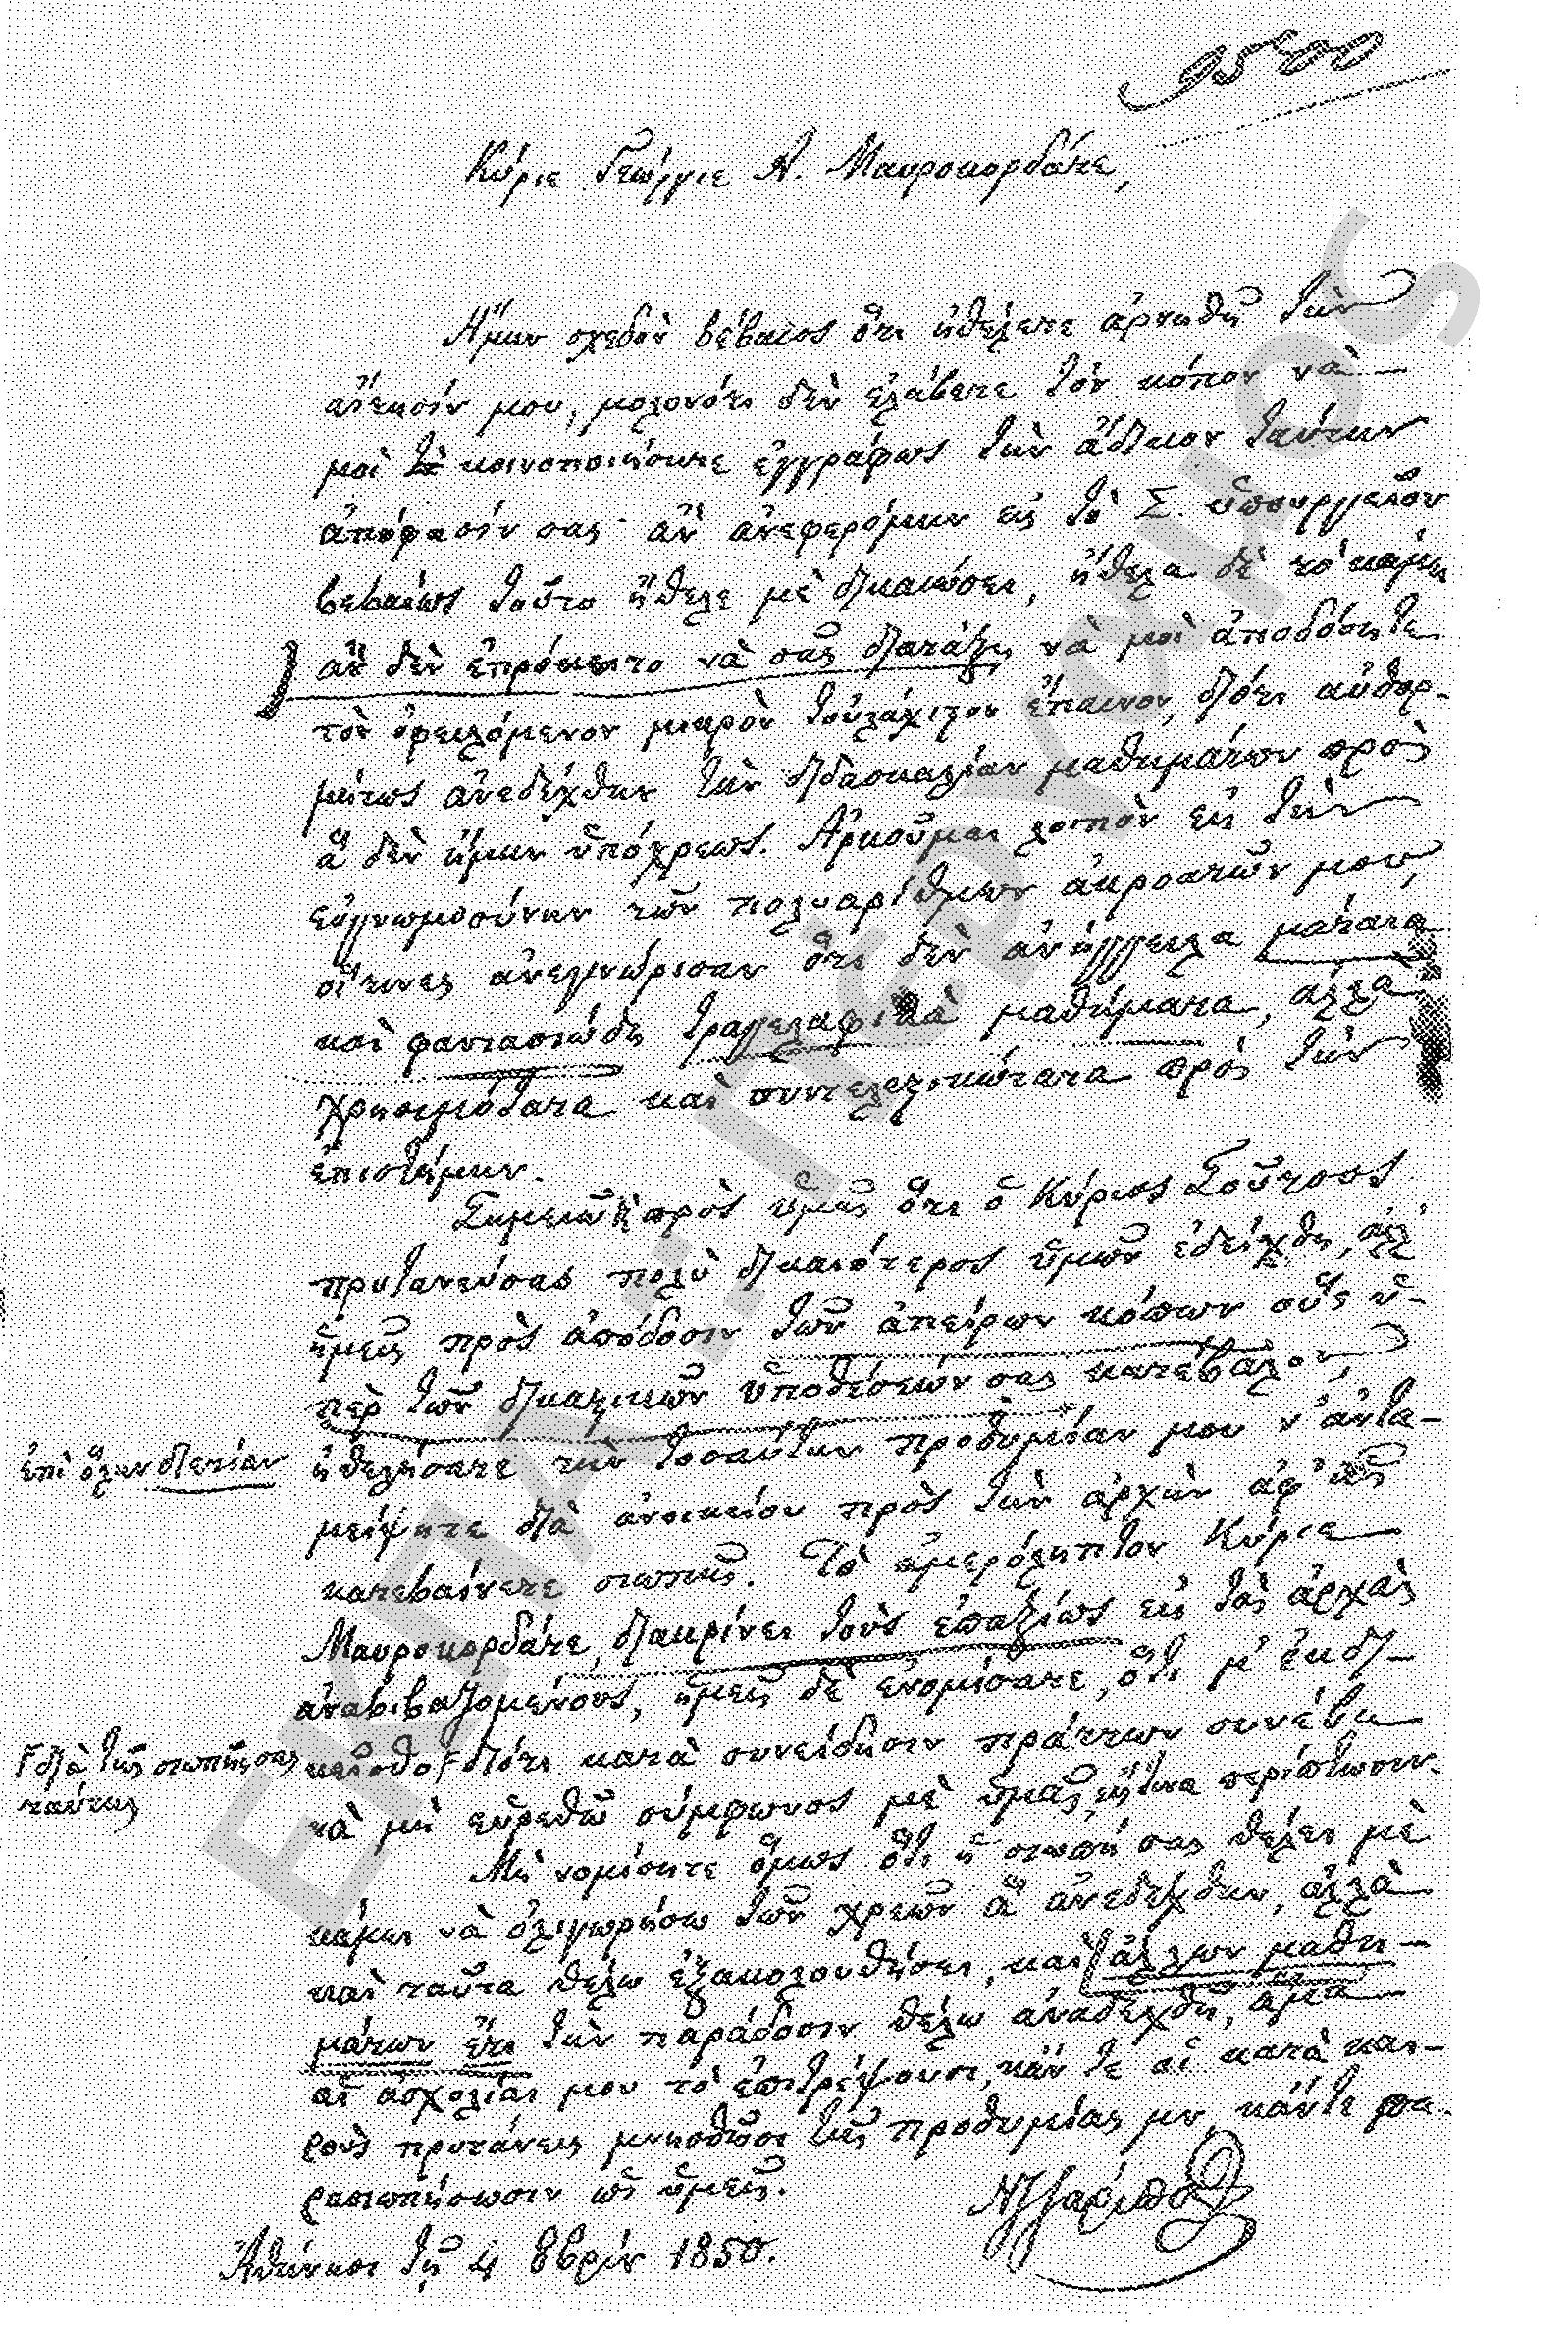 9500
Κύριε Γεώργιε Α. Μαυροκορδάτε,
Ἤμην σχεδὸν βέβαιος ὅτι ἠθέλετε ἀρνηθῆ τὴν
αἴτησίν μου, μολονότι δὲν ἐλάβετε τὸν κόπον νὰ
μοὶ κοινοποιήσητε ἐγγράφως τὴν ἄδικον ταύτην
ἀπόφασίν σας· ἂν ἀνεφερόμην εἰς τὸ Σ. ὑπουργεῖον
βεβαίως τοῦτο ἤθελε μὲ δικαιώσει, ἤθελα δὲ τὸ κάμει
ἂν δὲν ἐπρόκειτο νὰ σᾶς διατάξῃ νὰ μοὶ ἀποδόσητε
τὸν ὀφειλόμενον μικρὸν τοὐλάχιστον ἔπαινον, διότι αὐθορ-
μήτως ἀνεδέχθην τὴν διδασκαλίαν μαθημάτων πρὸς
ἃ δὲν ἤμην ὑπόχρεως. Ἀρκοῦμαι λοιπὸν εἰς τὴν
εὐγνωμοσύνην τῶν πολυαρίθμων ἀκροατῶν μου,
οἵτινες ἀνεγνώρισαν ὅτι δὲν ἀνήγγειλα μάταια
καὶ φαντασιώδη τραγελαφικὰ μαθήματα, ἀλλὰ
χρησιμώτατα καὶ συντελεστικώτατα πρὸς τὴν
ἐπιστήμην.
Σημειῶ πρὸς ὑμᾶς ὅτι ὁ Κύριος Σοῦτσος
πρυτανεύσας πολὺ δικαιότερος ὑμῶν ἐδείχθη, ἀλλ'
ὑμεῖς πρὸς ἀπόδοσιν τῶν ἀπείρων κόπων οὓς ὑ-
πὲρ τῶν δικαστικῶν ὑποθέσεών σας κατέβαλον,
ἐπὶ ὅλην διετίαν
ἠθελήσατε τὴν τοσαύτην προθυμίαν μου ν' ἀντα-
μείψητε διὰ ἀνοικείου πρὸς τὴν ἀρχὴν ἀφ' ἧς
καταβαίνετε σιωπῆς. Τὸ ἀμερόληπτον Κύριε
Μαυροκορδάτε, διακρίνει τοὺς ἐπαξίως εἰς τὰς ἀρχὰς
ἀναβιβαζομένους, ὑμεῖς δὲ ἐνομίσατε, ὅτι μ' ἐκδι-
κεῖσθε διότι κατὰ συνείδησιν πράττων συνέβη
διὰ τῆς σιωπῆς σας
ταύτης
νὰ μὴ εὑρεθῶ σύμφωνος μὲ ὑμᾶς εἴς τινα περίπτωσιν.
Μὴ νομίσητε ὅμως ὅτι ἡ σιωπή σας θέλει μὲ
κάμει νὰ ὀλιγωρήσω τῶν χρεῶν ἃ ἀνεδέχθην, ἀλλὰ
καὶ ταῦτα θέλω ἐξακολουθήσει, καὶ ἄλλων μαθη-
μάτων ἔτι τὴν παράδοσιν θέλω ἀναδεχθῆ, ἅμα
αἱ ἀσχολίαι μου τὸ ἐπιτρέψουσι, κἄν τε οἱ κατὰ και-
ροὺς πρυτάνεις μνησθῶσι τῆς προθυμίας μου, κἄν τε πα-
ρασιωπήσωσιν ὡς ὑμεῖς.
Ἀθήνησι τῇ 4 8βρίου 1850.
ΕΚΠΑ - Ιστορικό Αρχείο